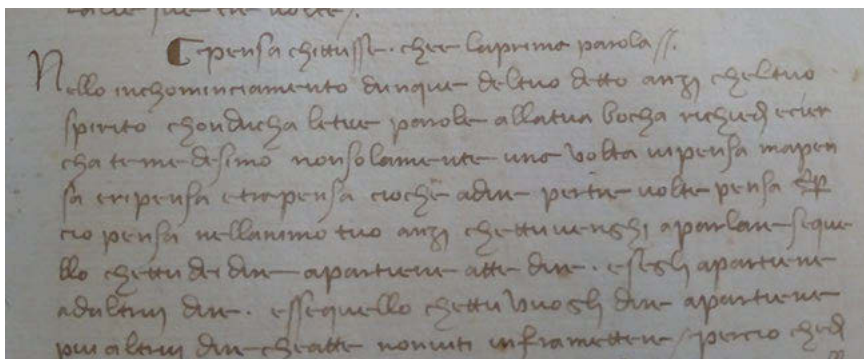 volte
pensa chittusse. chee laprima parola
Nello inchominciamento dunque deltuo detto anzi cheltuo
spirito chonducha letue parole allatua bocha richiedi ecier
cha temedesimo nonsolamente una volta vipensa mapen
sa eripensa etrapensa cioche adire pertre volte pensa
cio pensa nellanimo tuo anzi chettuvenghi aparlare seque
llo chettu dei dire apartiene atte dire. esegli apartiene
adaltrui dire. essequello chettu vuogli dire apartiene
piu altrui dire cheatte nonviti inframettere percioched